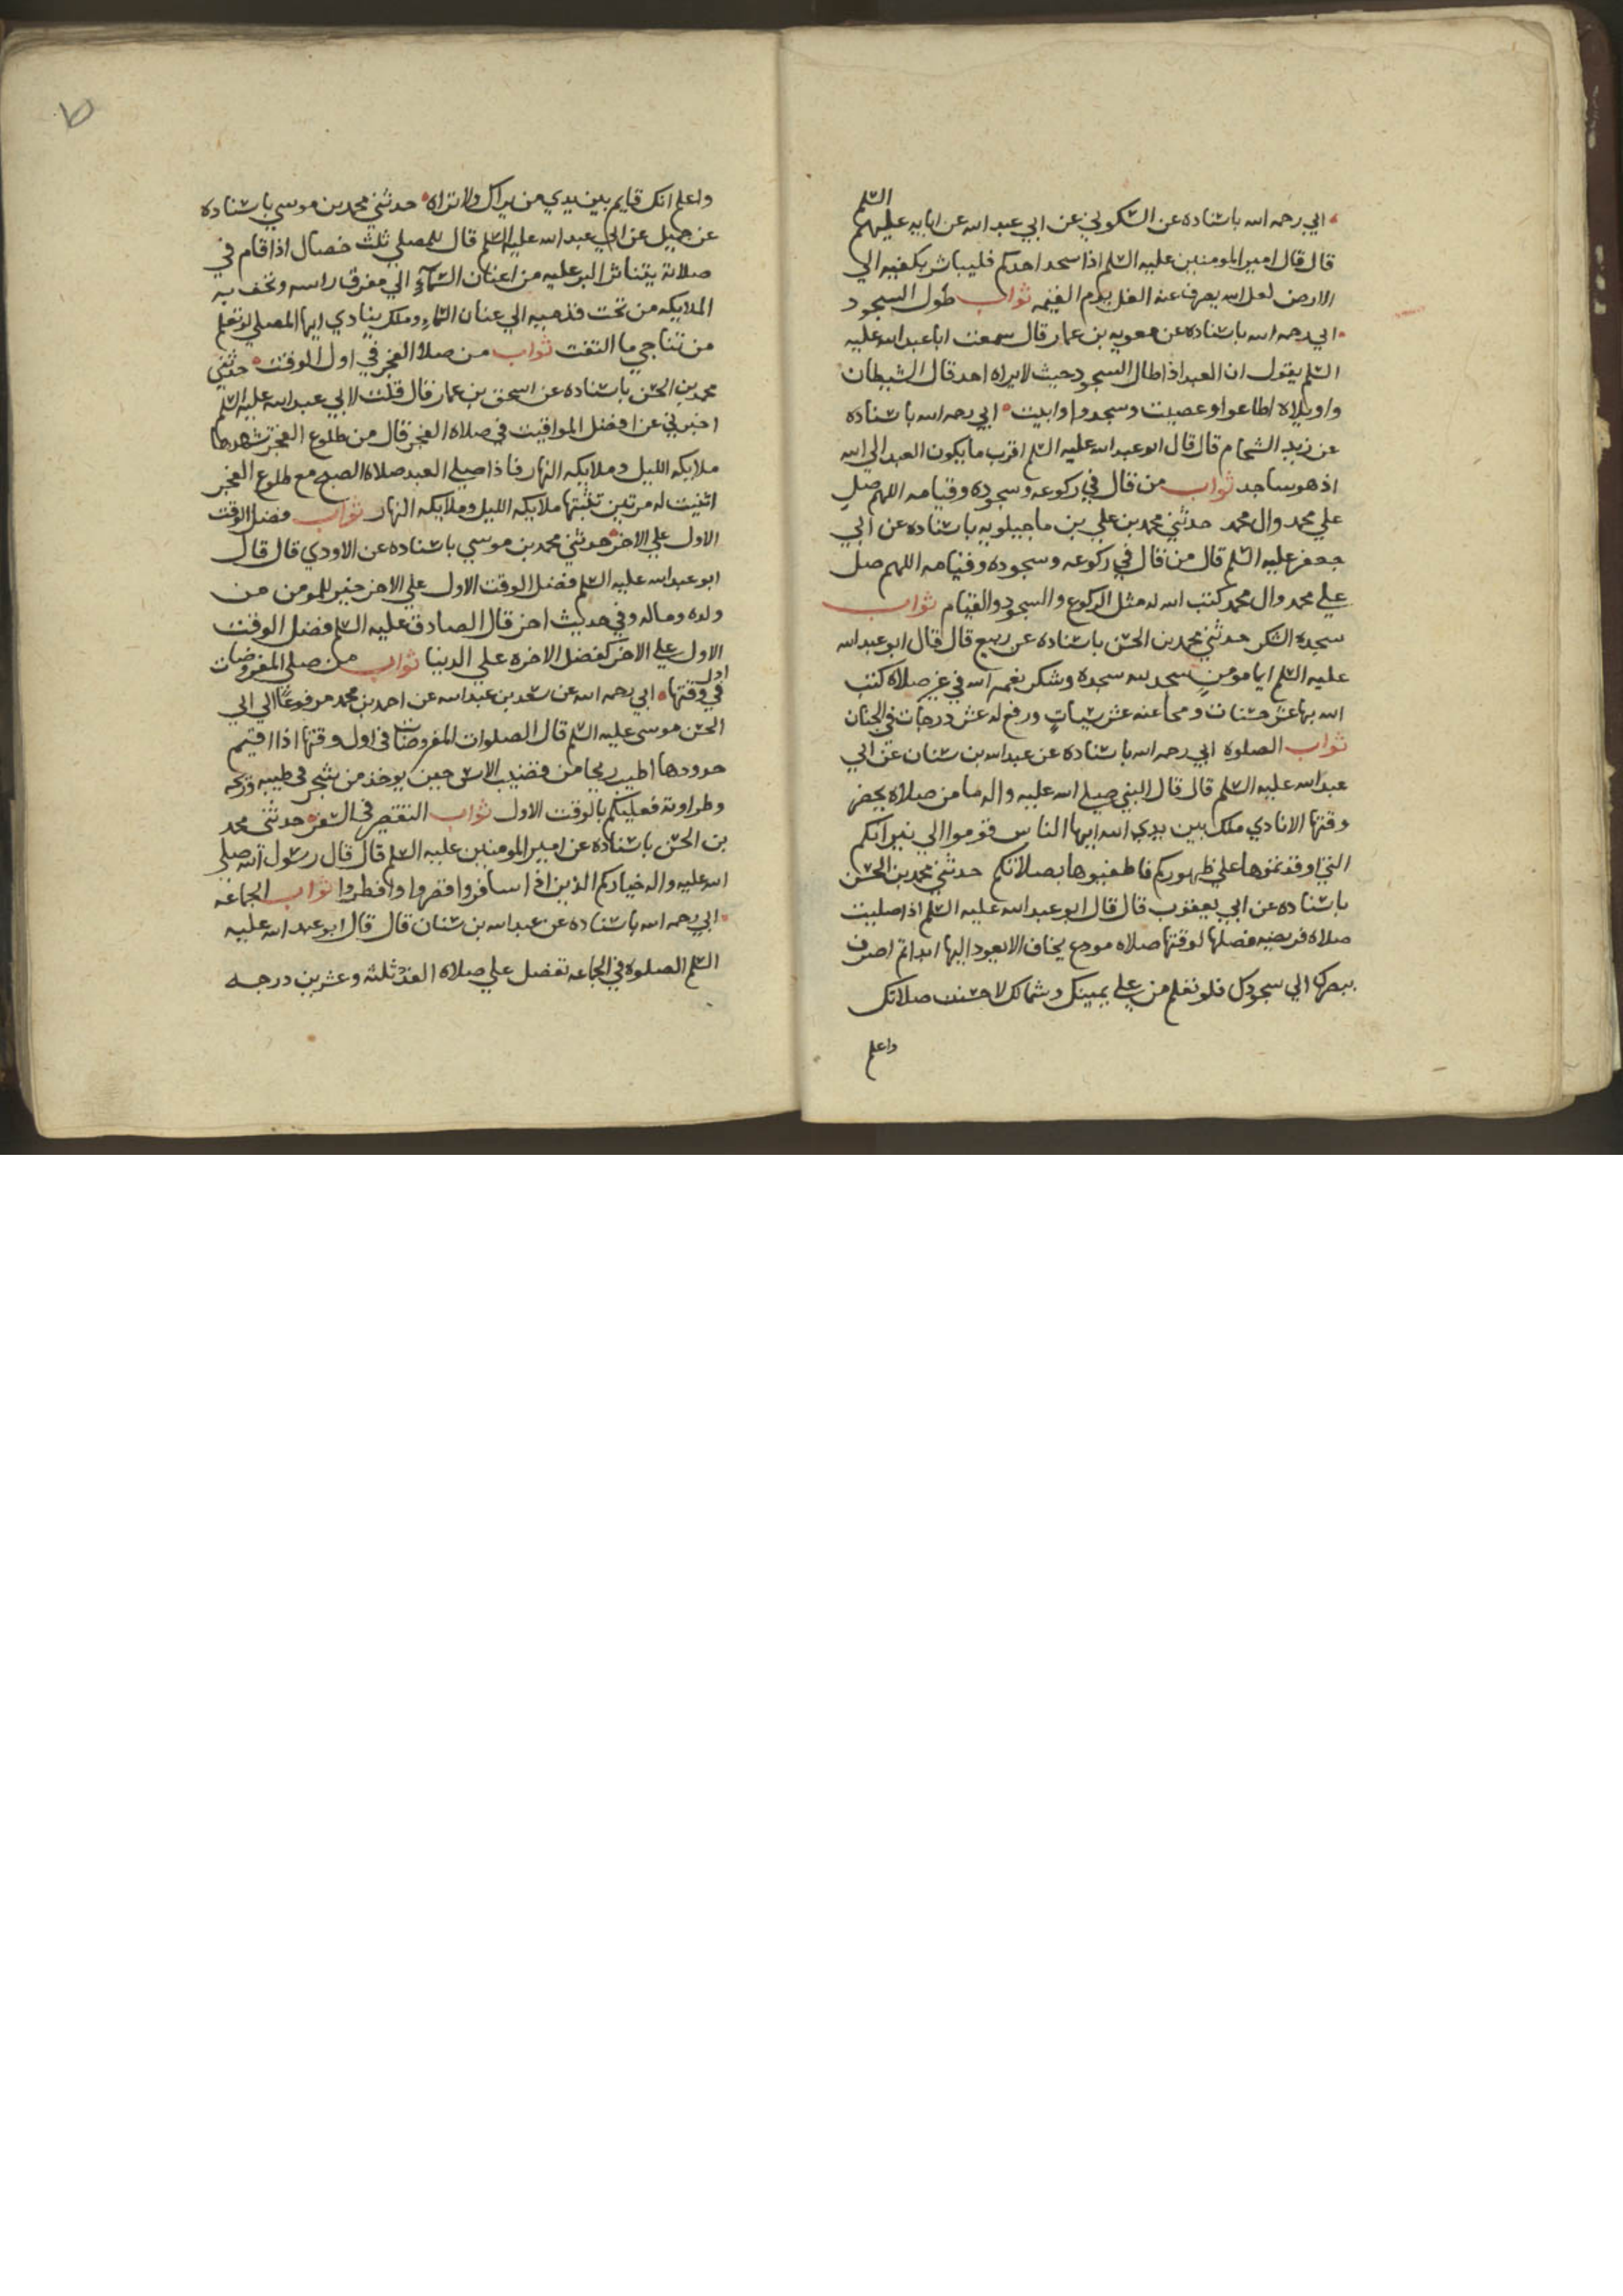 السلم
ابي رحمه الله باسناده عن السكوني عن ابي عبد الله عن ابايه عليهم
قال قال امير المومنين عليه السلم اذا سجد احدكم فليباشر بكفيه الي
الارض لعل الله يصرف عنه الغل يوم القيمه ثواب طول السجود
ابي رحمه الله باسناده عن معويه بن عمار قال سمعت ابا عبد الله عليه
السلم يقول ان العبد اذا طال السجود حيث لا يراه احد قال الشيطان
واويلاه اطاعوا وعصيت وسجدوا وابيت ابي رحمه الله باسناده
عن زيد الشحام قال قال ابو عبد الله عليه السلم اقرب ما يكون العبد الي الله
اذ هو ساجد ثواب من قال في ركوعه وسجوده وقيامه اللهم صل
علي محمد وال محمد حدثني محمد بن علي بن ماجيلويه باسناده عن ابي
جعفر عليه السلم قال من قال في ركوعه وسجوده وقيامه اللهم صل
علي محمد وال محمد كتب الله له مثل الركوع والسجود والقيام ثواب
سجده الشكر حدثني محمد بن الحسن باسناده عن ربيع قال قال ابو عبد الله
عليه السلم ايما مومن سجد لله سجده وشكر نعمه الله في غير صلاه كتب
الله بها عشر حسنات ومحا عنه عشر سيات ورفع له عشر درجات في الجنان
ثواب الصلوه ابي رحمه الله باسناده عن عبد الله بن سنان عن ابي
عبد الله عليه السلم قال قال النبي صلي الله عليه واله ما من صلاه يحضر
وقتها الا نادي ملك بين يدي الله ايها الناس قوموا الي نيرانكم
التي اوقدتموها علي ظهوركم فاطفيوها بصلاتكم حدثني محمد بن الحسن
باسناده عن ابي يعقوب قال قال ابو عبد الله عليه السلم اذا صليت
صلاه فريضه فصلها لوقتها صلاه مودع يخاف الا يعود اليها ابدا ثم اصرف
ببصرك الي سجودك فلو تعلم من علي يمينك وشمالك لاحسنت صلاتك
واعلم
واعلم انك قايم بين يدي من يراك ولا تراه حدثني محمد بن موسي باسناده
عن جميل عن ابي عبد الله عليه السلم قال للمصلي ثلث خصال اذا قام في
صلاته يتناثر البر عليه من اعنان السماء الي مفرق راسه وتحف به
الملايكه من تحت قدميه الي عنان السماء وملك ينادي ايها المصلي لو تعلم
من تناجي ما التفت ثواب من صلا الفجر في اول الوقت حدثني
محمد بن الحسن باسناده عن اسحق بن عمار قال قلت لابي عبد الله عليه السلم
اخبرني عن افضل المواقيت في صلاه الفجر قال من طلوع الفجر تشهدها
ملايكه الليل وملايكه النهار فاذا صلي العبد صلاه الصبح مع طلوع الفجر
اثبتت له مرتين تثبتها ملايكه الليل وملايكه النهار ثواب فضل الوقت
الاول علي الاخر حدثني محمد بن موسي باسناده عن الاودي قال قال
ابو عبد الله عليه السلم فضل الوقت الاول علي الاخر خير للمومن من
ولده وماله وفي حديث اخر قال الصادق عليه السلم فضل الوقت
الاول علي الاخر كفضل الاخره علي الدنيا ثواب من صلي المفروضات
اول
في وقتها ابي رحمه الله عن سعد بن عبد الله عن احمد بن محمد مرفوعا الي ابي
الحسن موسي عليه السلم قال الصلوات المفروضات في اول وقتها اذا اقيم
حدودها اطيب ريحا من قضيب الاس حين يوخذ من شجر في طيبه وريحه
وطراوته فعليكم بالوقت الاول ثواب التقصير في السفر حدثني محمد
بن الحسن باسناده عن امير المومنين عليه السلم قال قال رسول الله صلي
الله عليه واله خياركم الذين اذا سافروا قصروا وافطروا ثواب الجماعه
ابي رحمه الله باسناده عن عبد الله بن سنان قال قال ابو عبد الله عليه
السلم الصلوه في الجماعه تفضل علي صلاه الفذ ثلثه وعشرين درجه